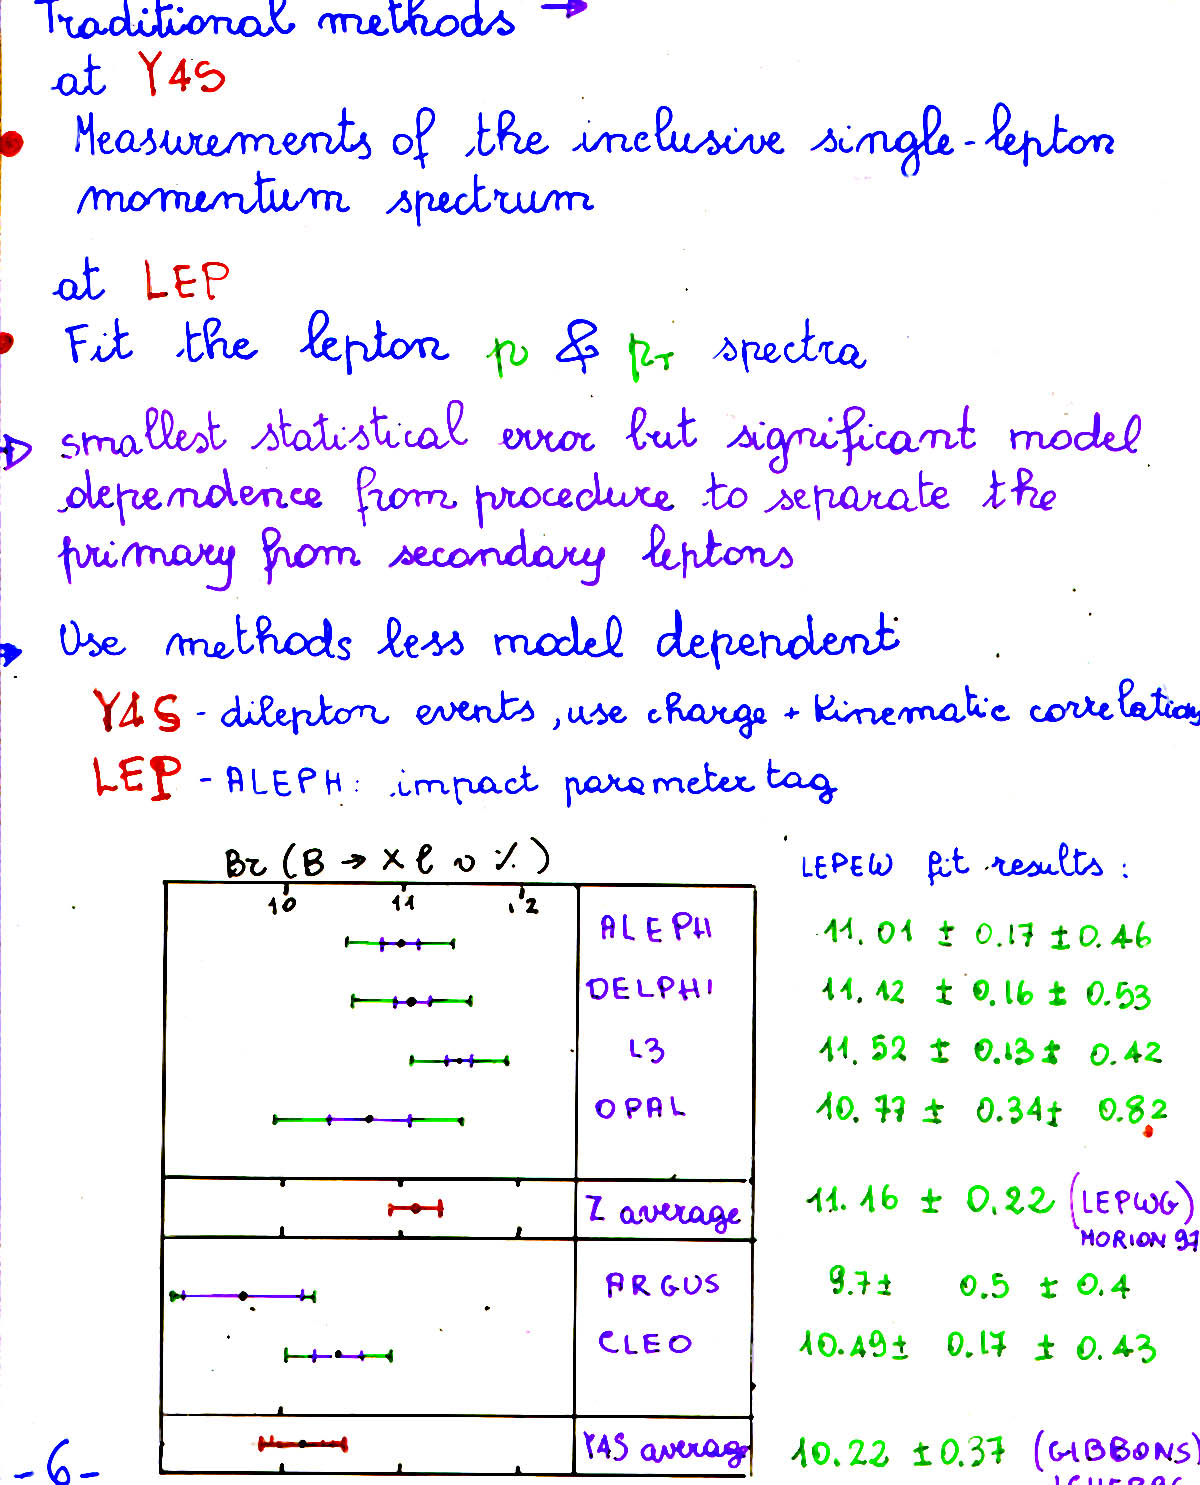 Traditional methods →
at Υ4S
• Measurements of the inclusive single-lepton
momentum spectrum
at LEP
• Fit the lepton p & pT spectra
⇒ smallest statistical error but significant model
dependence from procedure to separate the
primary from secondary leptons
→ Use methods less model dependent
Υ4S - dilepton events, use charge + kinematic correlations
LEP - ALEPH: impact parameter tag
Br (B → X l ν %)
LEPEW fit results:
10 11 12
ALEPH 11.01 ± 0.17 ± 0.46
DELPHI 11.12 ± 0.16 ± 0.53
L3 11.52 ± 0.13 ± 0.42
OPAL 10.77 ± 0.34 ± 0.82
Z average 11.16 ± 0.22 (LEPWG)
MORION 97
ARGUS 9.7 ± 0.5 ± 0.4
CLEO 10.49 ± 0.17 ± 0.43
Υ4S average 10.22 ± 0.37 (GIBBONS)
-6-